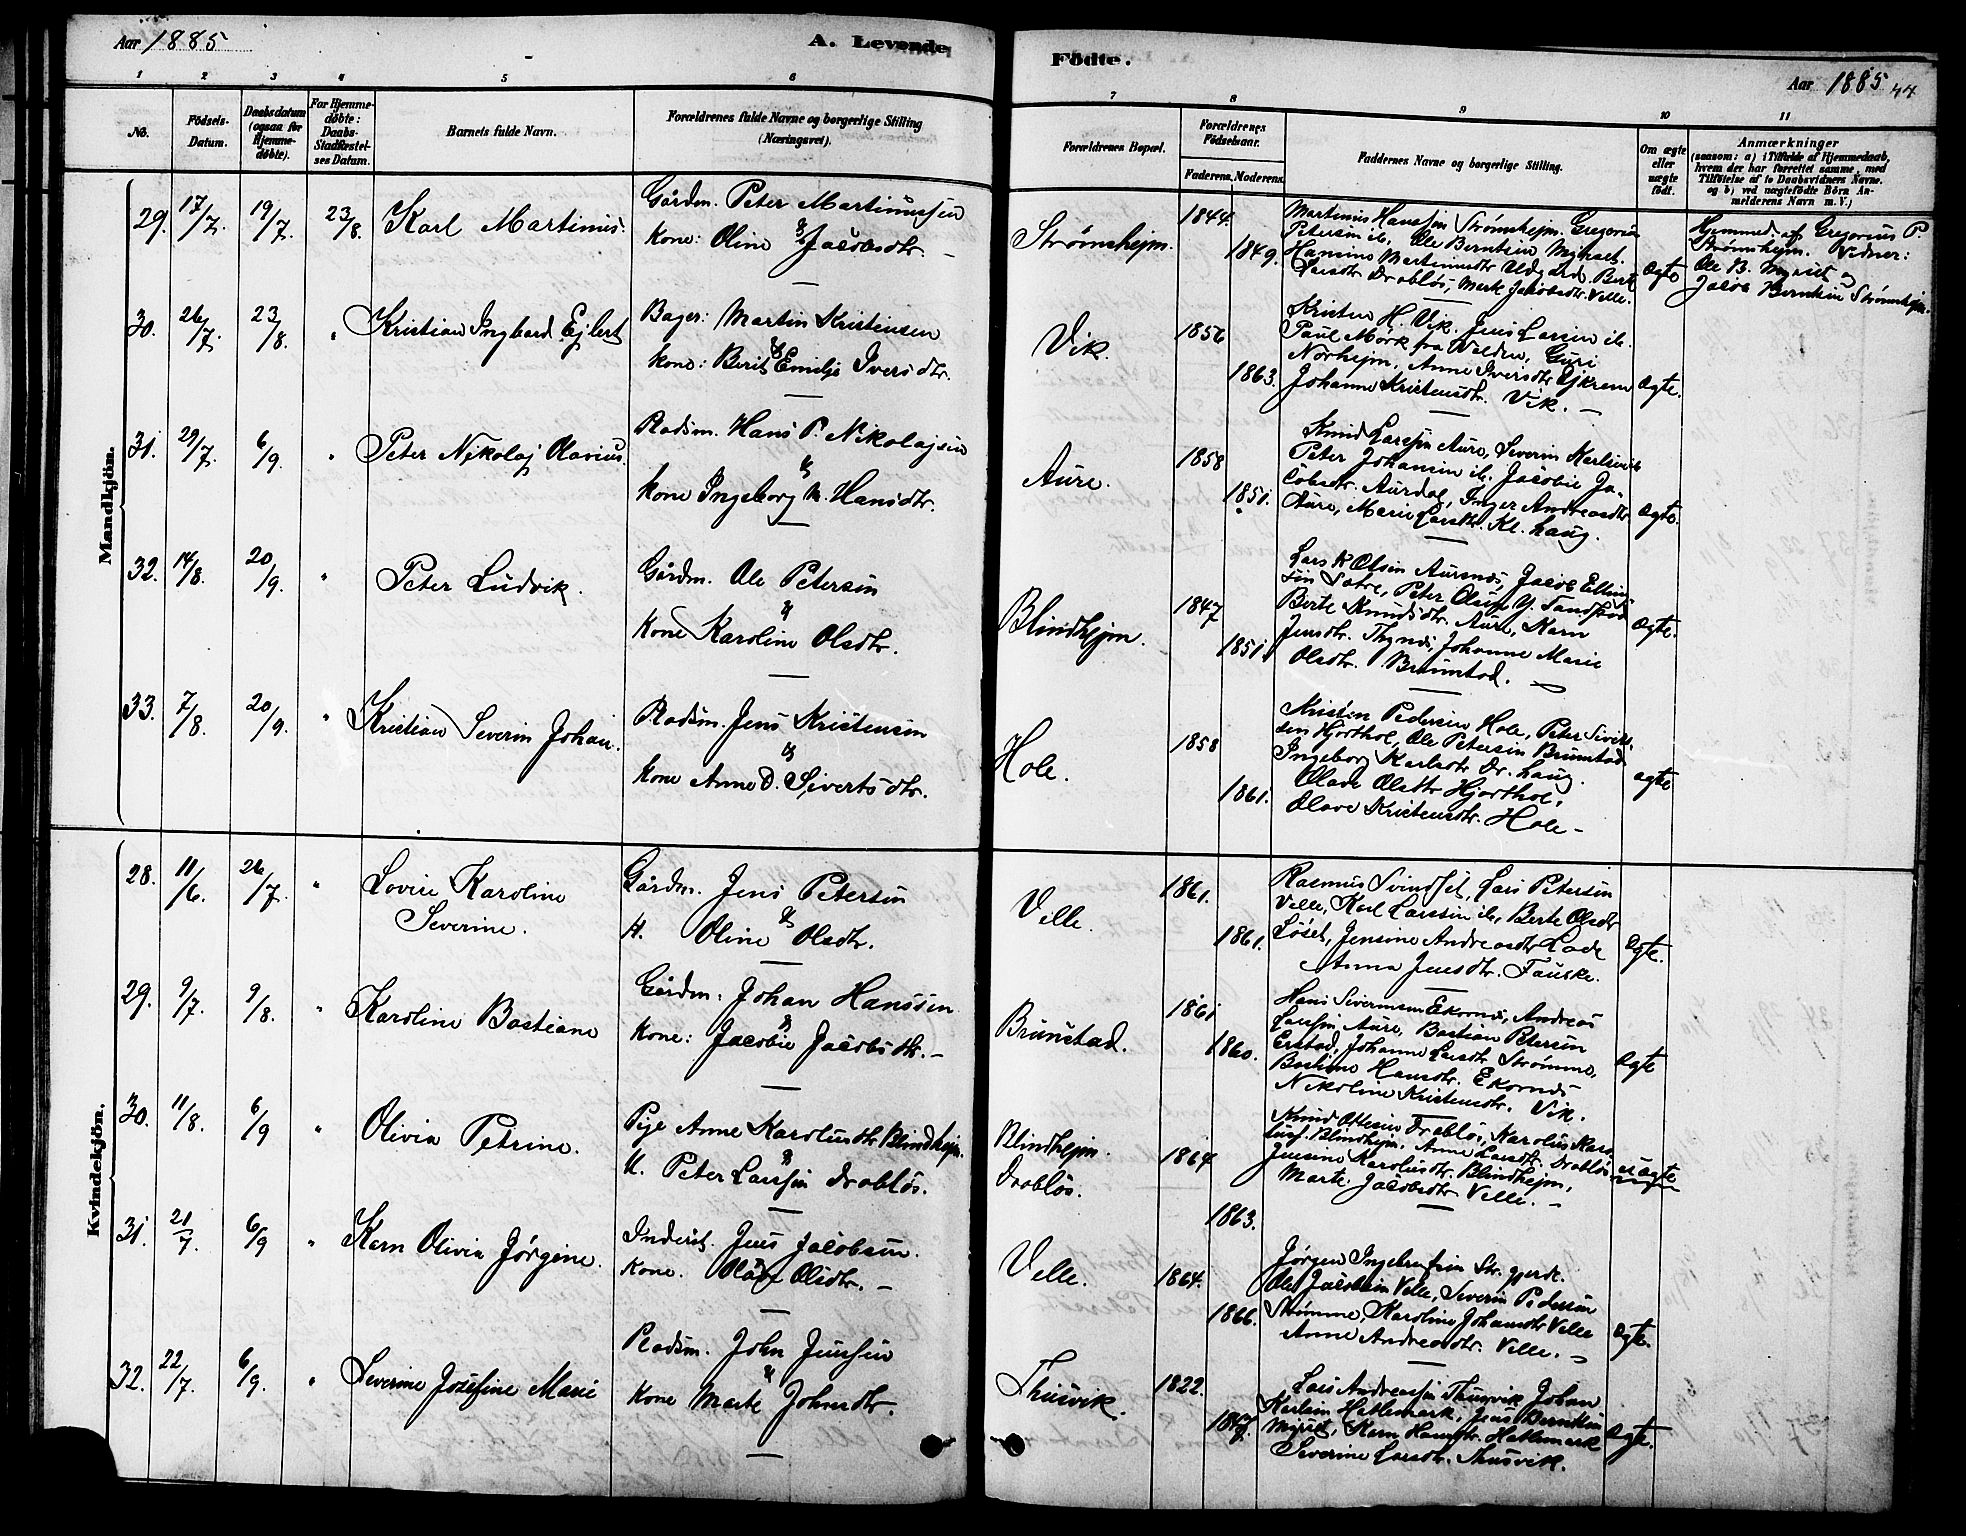 Aar 1885
A. Levende
Födte.
Aar 1885 44
1 2 3 4 5 6 7 8 9 10 11
No.
Födsels-
Datum.
Daabsdatum
(ogsaa for
Hjemme-
døbte).
For Hjemme-
døbte:
Daabs-
Stadfæstel-
ses Datum.
Barnets fulde Navn.
Forældrenes fulde Navne og borgerlige Stilling
(Næringsvei).
Forældrenes Bopæl.
Forældrenes
Födselsaar.
Faderens. Moderens.
Faddernes Navne og borgerlige Stilling.
Om ægte
eller
uægte
født.
Anmærkninger
(saasom: a) i Tilfælde af Hjemmedaab,
hvem der har forrettet samme, med
Tilföielse af to Daabsvidners Navne.
og b) ved uægtefödte Börn An-
melderens Navn m. V.)
Mandkjön.
29. 17/7. 19/7. 23/8. Karl Martinus.
Gårdm. Peter Martinussen
&
Kone: Oline Jacobsdtr.
Strømshejm.
1844.
1849.
Martinus Hanssen Strømshejm. Gregorius
Petersen ib., Ole Berntsen Myrset.
Hansine Martinusdtr Udgård. Berte
Larsdtr Drabløs, Marte Jakobsdtr. Velle.
Ægte
Hjemmed. af Gregorius P.
Strømshejm. Vidner:
Ole B. Myrset og
Jacob Berntsen Strømshejm.
30. 26/7. 23/8. " Kristian Ingvard Ejlert
Bager: Martin Kristensen
&
Kone: Berit Emilje Iversdtr.
Vik.
1856
1863.
Kristen H. Vik. Jens Larsen ib.
Paul Mørk fra Volden, Guri
Norhejm, Anne Iversdtr Ejkrem
Johanne Kristensdtr. Vik.
Ægte.
31. 29/7. 6/9. " Peter Nikolaj Olavius.
Pladsm. Hans P. Nikolajsen
&
Kone Ingeborg M. Hansdtr.
Aure.
1858
1851.
Knud Larssen Aure, Severin Karlsvik
Peter Johansen ib. Jacobie Ja-
cobsdtr. Aurdal, Inger Andreasdtr
Aure, Marie Larsdtr. Kl. haug.
Ægte.
32. 14/8. 20/9. " Peter Ludvik.
Gårdm. Ole Petersen
&
Kone Karoline Olsdtr.
Blindhejm.
1847
1851.
Lars K Olsen Aursnes, Jacob Elling-
sen Satre, Peter Olsen Y. Tandstad
Berte Knudsdtr. Aure, Karn
Jensdtr. Thynes, Johanne Marie
Olsdtr. Brunstad.
Ægte.
33. 7/8. 20/9. " Kristian Severin Johan.
Pladsm. Jens Kristensen
&
Kone Anne D. Sivertsdtr.
Hole.
1858
1861.
Kristen Pedersen Hole, Peter Siverts-
sen Hjorthol, Ole Petersen Brunstad
Ingeborg Karlsdtr Dr. haug.
Olave Olsdtr Hjorthol,
Olave Kristensdtr. Hole
ægte
Kvindekjön.
28. 11/6. 26/7. " Lovise Karoline
Severine.
Gårdm. Jens Petersen
&
H. Oline Olsdtr.
Velle.
1861.
1861.
Rasmus Svindset, Lars Petersen
Velle, Karl Larssen ib., Berte Olsdtr
Løset, Jensine Andreasdtr Lade
Anna Jensdtr. Fauske.
Ægte.
29. 9/7. 9/8. " Karoline Bastiane
Gårdm: Johan Hanssen
&
Kone: Jacobie Jacobsdtr.
Brunstad.
1861
1860.
Hans Sivertsen Ekornes, Andreas
Larssen Aure, Bastian Petersen
Erstad, Johanne Larsdtr Strømme,
Bastine Hansdtr. Ekornes
Nikoline Kristensdtr. Vik.
Ægte
30. 11/8. 6/9 " Olivia Petrine.
Pige Anne Karolusdtr Blindhejm.
&
U. Peter Larssen Drabløs.
Blindhejm.
Drabløs.
1864
1863.
Knud Ottesen Drabløs, Karolus Karo-
lusf. Blindhejm. Anne Larsdtr. Drabløs.
Jensine Karolusdtr. Blindhejm,
Marte Jacobsdtr Velle.
uægte
31. 21/7. 6/9 " Karn Olivia Jørgine.
Inderst. Jens Jacobsen.
&
Kone. Olave Olsdtr.
Velle.
1864.
1866.
Jørgen Ingebrigtsen Str. gjerde.
Ole Jacobsen Velle, Severin Pedersen
Strømme, Karoline Johansdtr Velle
Anne Andreasdtr. Velle.
Ægte.
32. 22/7. 6/9. " Severine Josefine Marie
Pladsm. John Jenssen
&
Kone Marte Johnsdtr.
Thusvik.
1822.
1847.
Lars Andreassen Thusvik Johan
Karlsen Hatlemark, Jens Berntsen
Myrset, Karn Hansdtr. Hatlemark
Severine Larsdtr. Thusvik.
Ægte.